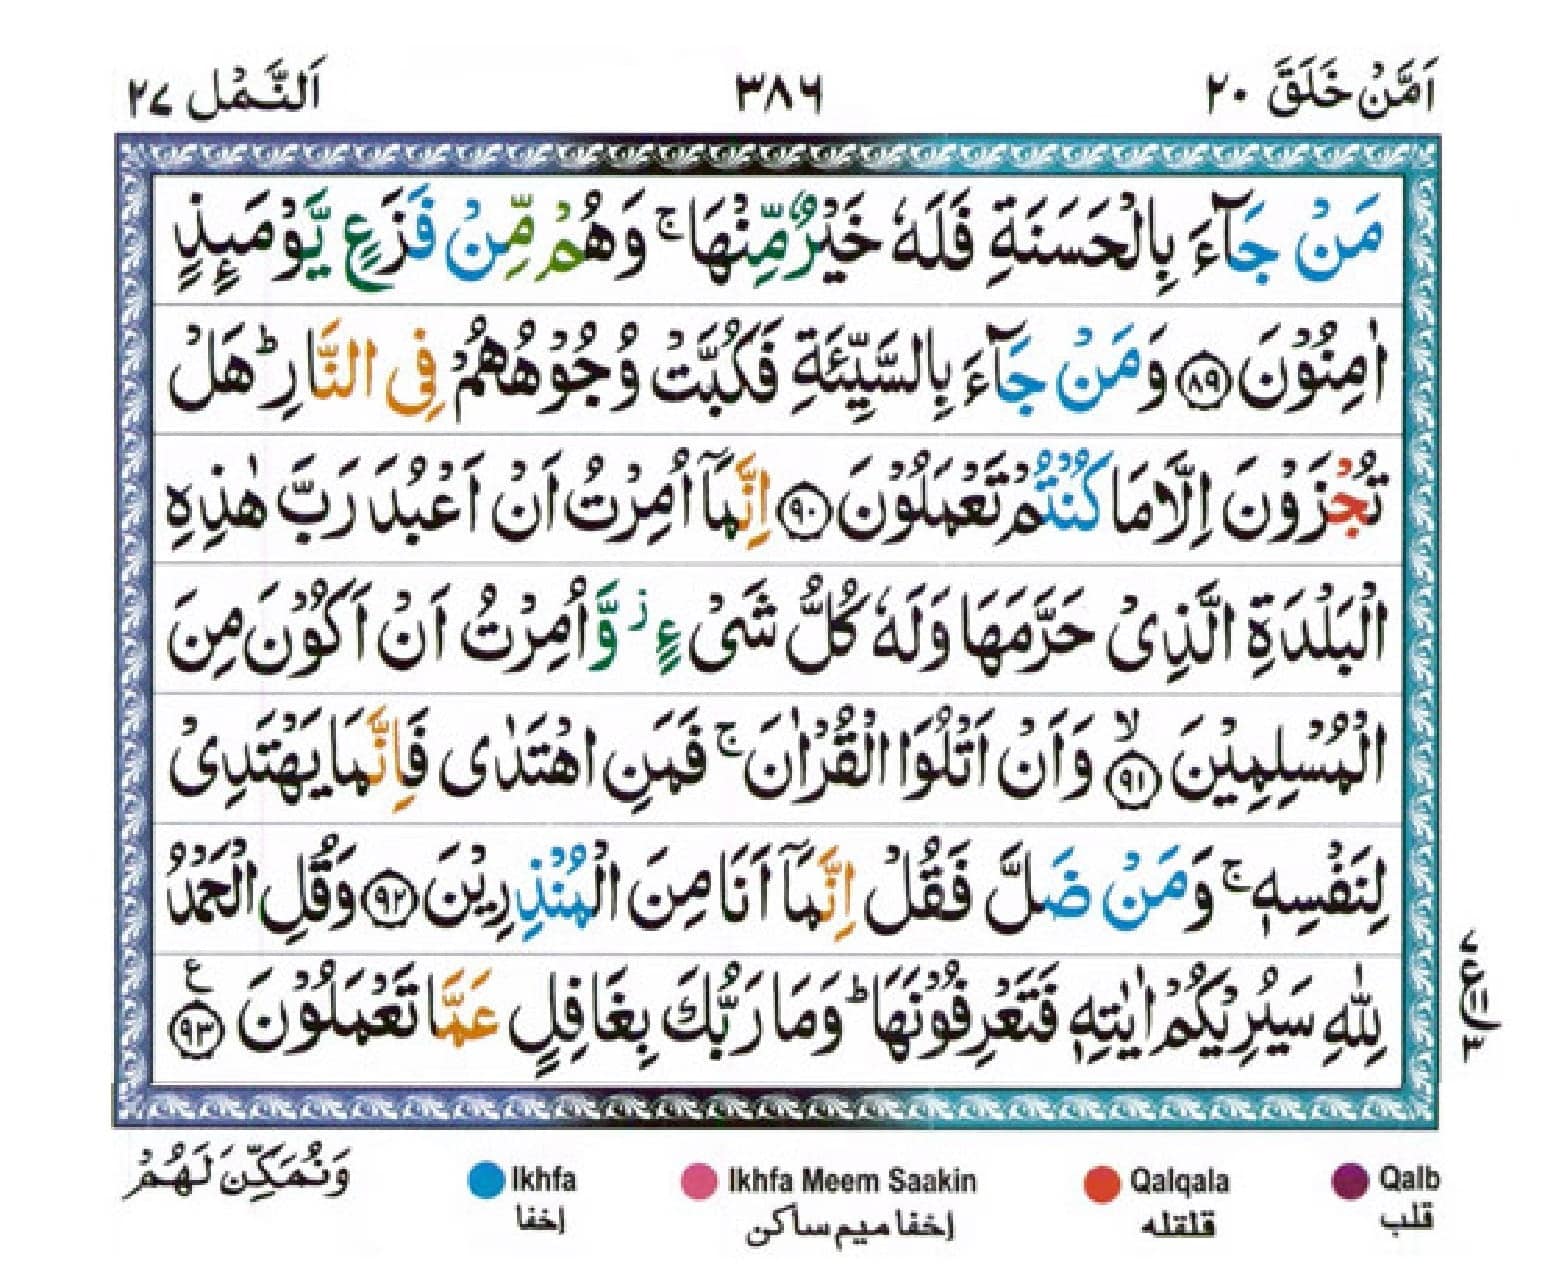 اَمَّنْ خَلَقَ ٢٠
٣٨٦
اَلنَّمْل ٢٧
مَنْ جَآءَ بِالْحَسَنَةِ فَلَهٗ خَيْرٌ مِّنْهَا ۚ وَهُمْ مِّنْ فَزَعٍ يَّوْمَىِٕذٍ
اٰمِنُوْنَ ﴿۸۹﴾ وَمَنْ جَآءَ بِالسَّيِّئَةِ فَكُبَّتْ وُجُوْهُهُمْ فِى النَّارِ ؕ هَلْ
تُجْزَوْنَ اِلَّا مَا كُنْتُمْ تَعْمَلُوْنَ ﴿۹۰﴾ اِنَّمَآ اُمِرْتُ اَنْ اَعْبُدَ رَبَّ هٰذِهِ
الْبَلْدَةِ الَّذِىْ حَرَّمَهَا وَلَهٗ كُلُّ شَىْءٍ ز وَّاُمِرْتُ اَنْ اَكُوْنَ مِنَ
الْمُسْلِمِيْنَ ۙ﴿۹۱﴾ وَاَنْ اَتْلُوَا الْقُرْاٰنَ ۚ فَمَنِ اهْتَدٰى فَاِنَّمَا يَهْتَدِىْ
لِنَفْسِهٖ ۚ وَمَنْ ضَلَّ فَقُلْ اِنَّمَآ اَنَا مِنَ الْمُنْذِرِيْنَ ﴿۹۲﴾ وَقُلِ الْحَمْدُ
لِلّٰهِ سَيُرِيْكُمْ اٰيٰتِهٖ فَتَعْرِفُوْنَهَا ؕ وَمَا رَبُّكَ بِغَافِلٍ عَمَّا تَعْمَلُوْنَ ﴿۹۳﴾ ع
٧
ع
١١
٣
Qalb
قلب
Qalqala
قلقله
Ikhfa Meem Saakin
إخفا میم ساکن
Ikhfa
إخفا
وَنُمَكِّنَ لَهُمْ